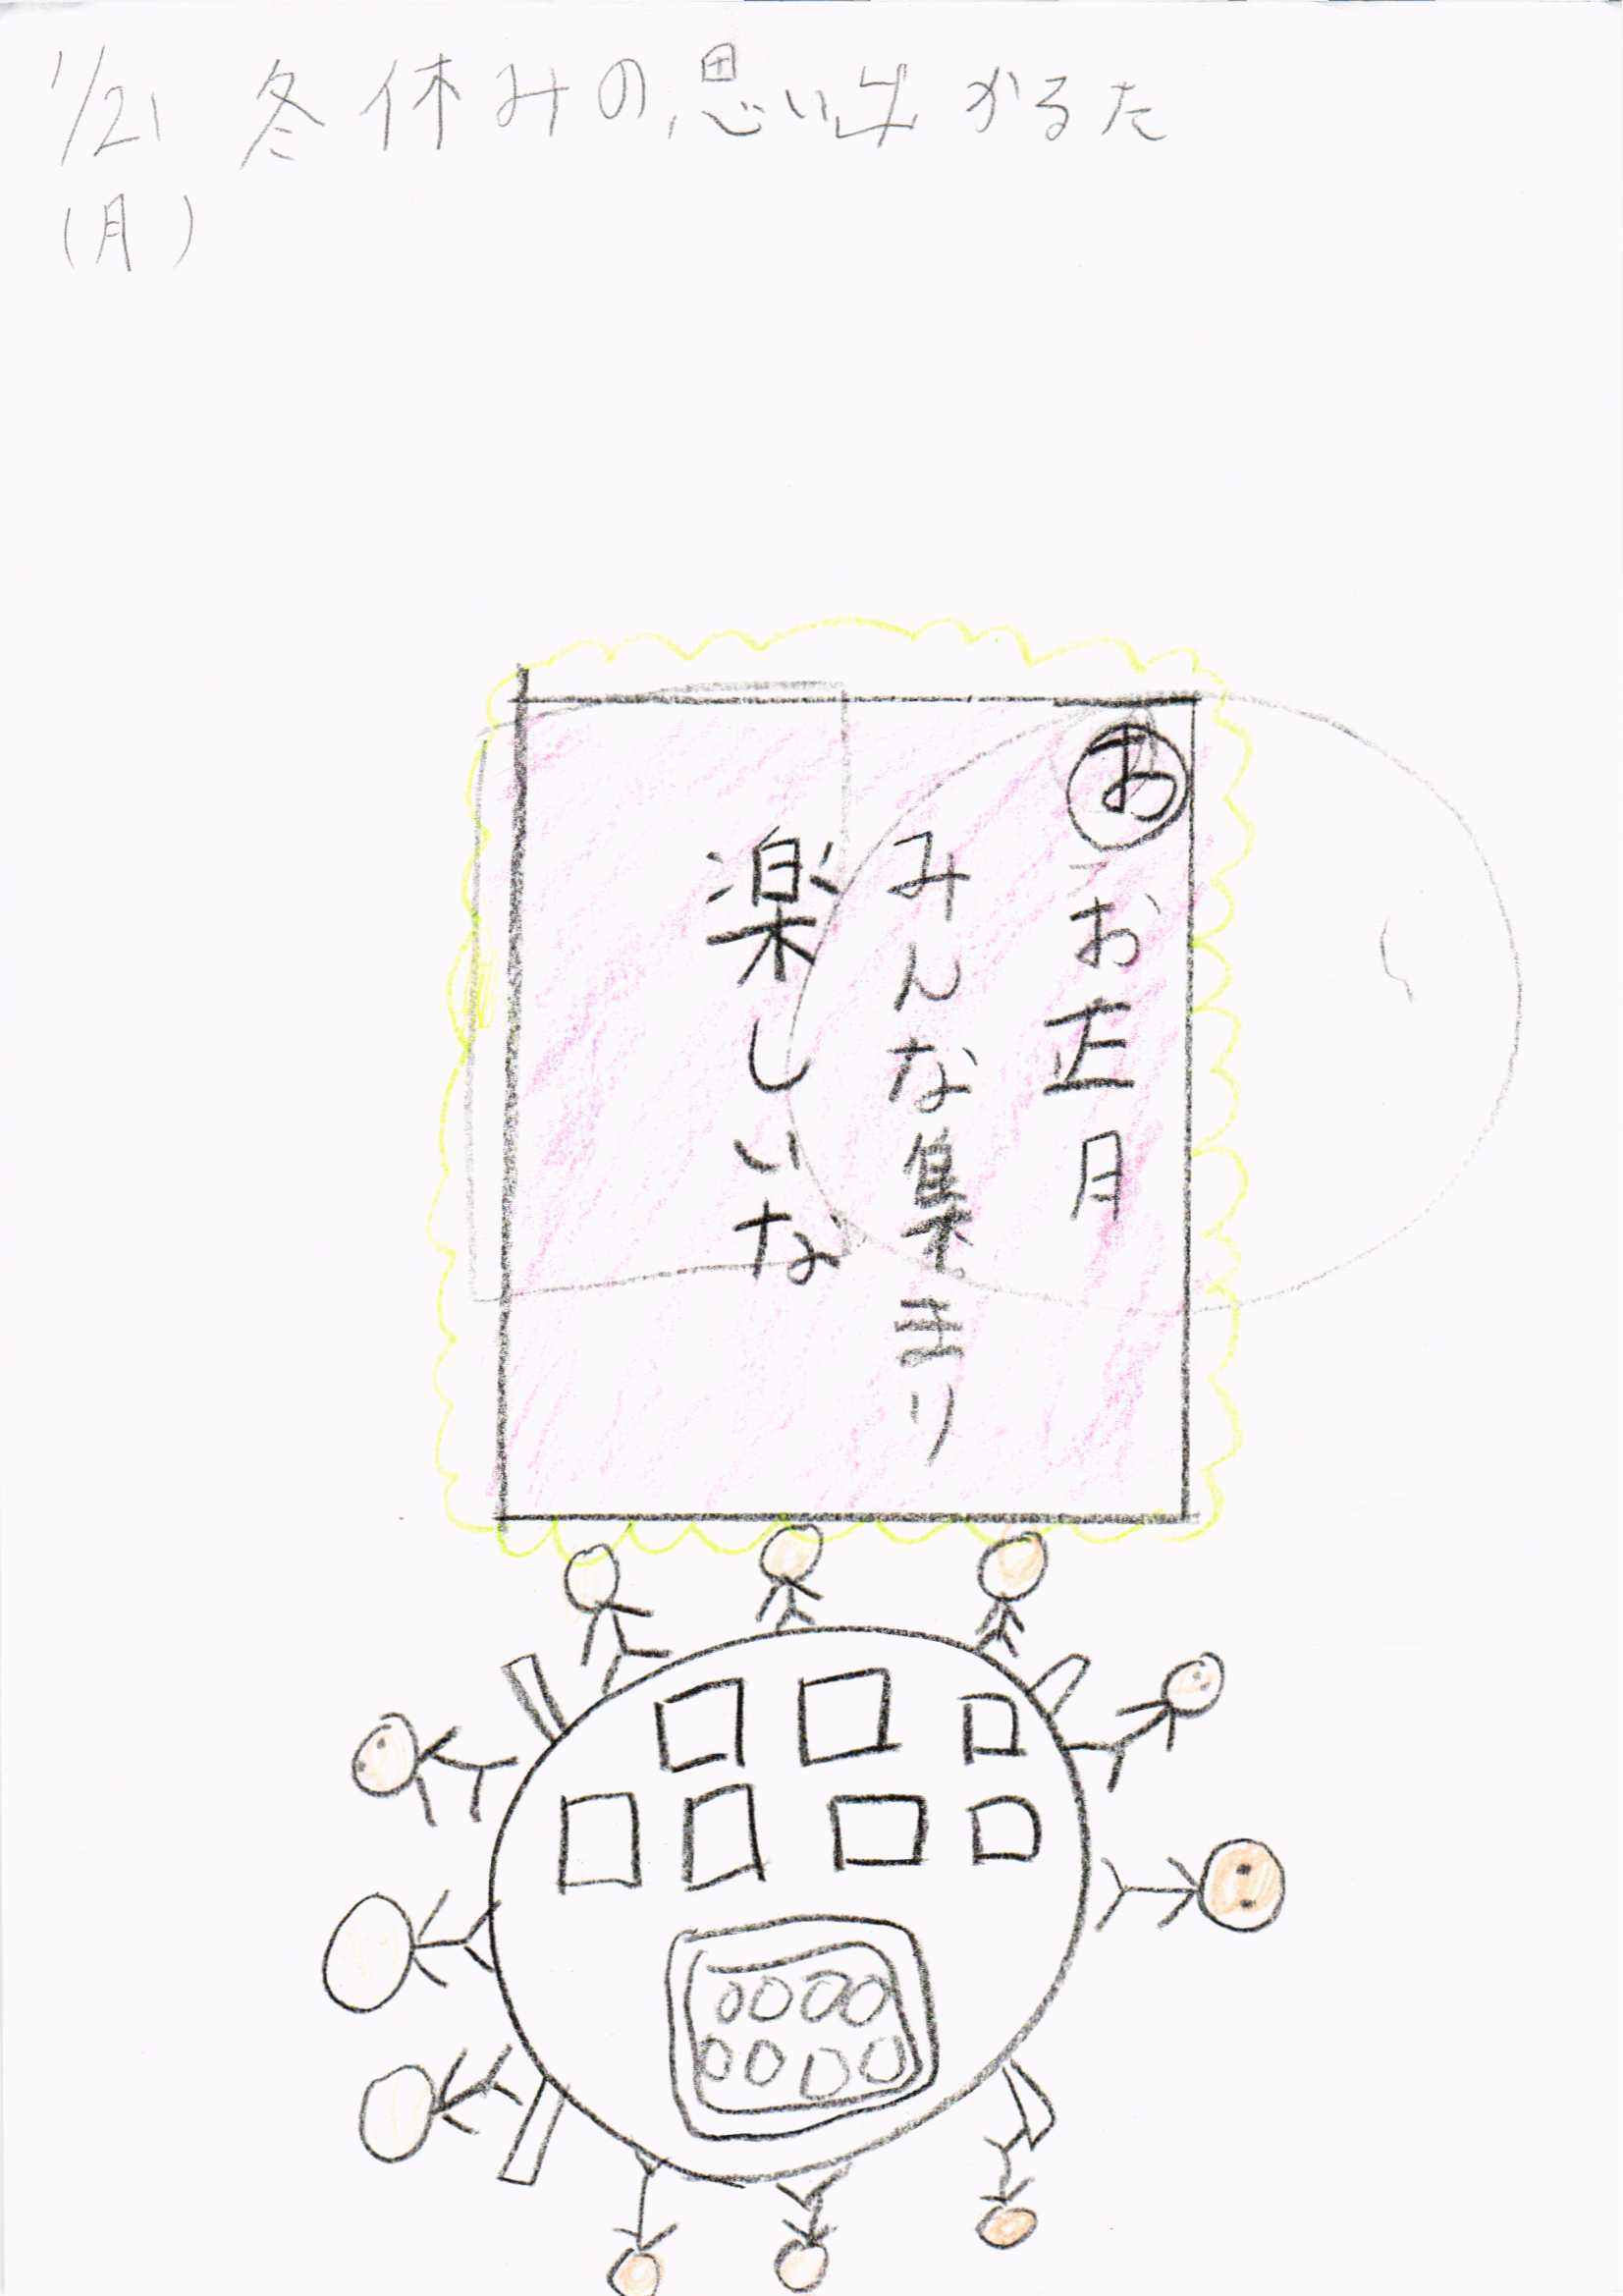 1/21 冬休みの思い出かるた
(月)
お
お正月
みんな集まり
楽しいな